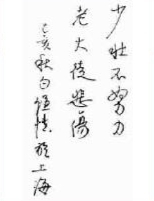 少壮不努力
老大徒悲伤
己亥秋白恒情于上海